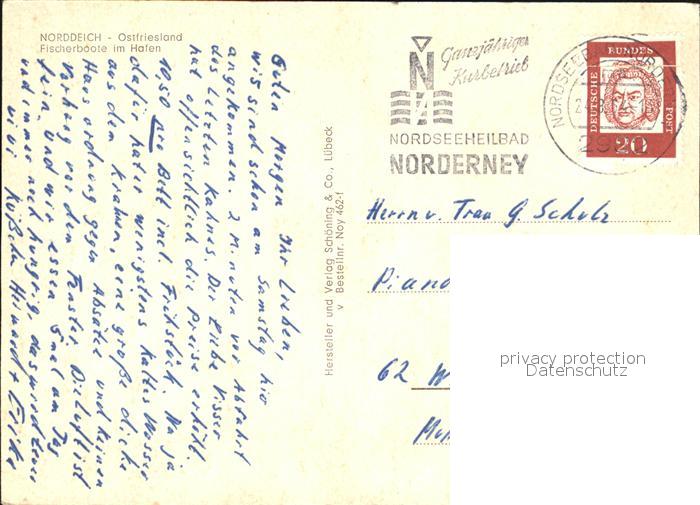 NORDDEICH - Ostfriesland
Fischerboote im Hafen
Guten Morgen Ihr Lieben,
wir sind schon am Samstag hier
angekommen. 2 Minuten vor Abfahrt
des letzten Kahnes. Die Liebe Visser
hat offensichtlich die Preise erhöht.
1050 pro Bett incl. Frühstück. Na ja
dafür hat er wenigstens kaltes Wasser
aus dem Kranen, eine große dicke
Hausordnung gegen Absätze und keinen
Vorhang vor dem Fenster. Die Luft ist
fein und wir essen 5 mal am Tag
und immer noch hungrig, das wird teuer
Küßchen
Hersteller und Verlag Schöning & Co., Lübeck
v Bestellnr. Noy 462-f
Ganzjähriger
Kurbetrieb
N
NORDSEEHEILBAD
NORDERNEY
NORDSEEB
DEUTSCHE
BUNDES
POST
20
Herrn u. Frau G. Scholz
62 W
privacy protection
Datenschutz